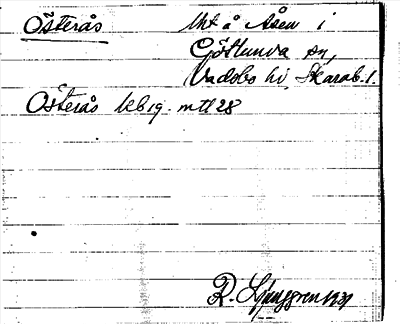 Österås Uht å Åsen i
Götlunda sn,
Vadsbo hd, Skarab. l.
Österås kb 19. mtl 28
R. Ljunggren 1931